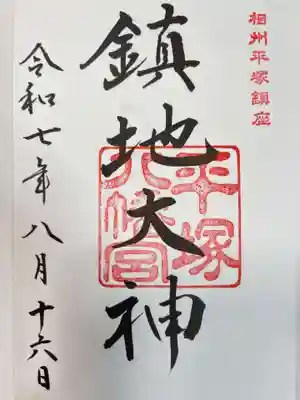 相州平塚鎮座
鎮地大神
平塚
八幡宮
令和七年八月十六日